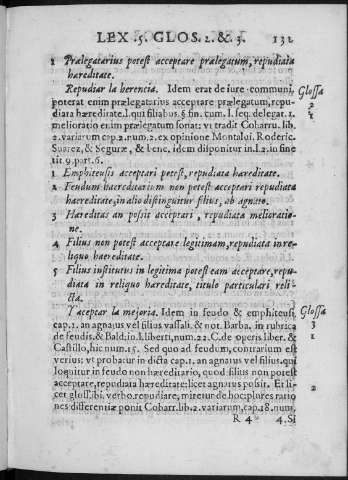 LEX .5. GLOS. 2. & 3. 131
1 Prælegatarius potest acceptare prælegatum, repudiata
hæreditate.
Repudiar la herencia. Idem erat de iure communi, Glossa
poterat enim prælegatarius acceptare prælegatum, repu- 2
diata hæreditate. l. qui filiabus. §. fin. cum. l. seq. delegat. 1.
melioratio enim prælegatum sonat: vt tradit Coharru. lib.
2. variarum cap. 2. num. 2. ex opinione Montalui. Roderic.
Suarez, & Seguræ, & bene, idem disponitur in. l. 2. in fine
tit 9. part. 6.
1 Emphiteusis acceptari potest, repudiata hæreditate.
2 Feudum haereditarium non potest acceptari repudiata
haereditate, in alio distinguitur filius, ab agnato.
3 Hæreditas an possit acceptari, repudiata melioratio-
ne.
4 Filius non potest acceptare legitimam, repudiata in re-
liquo haereditate.
5 Filius institutus in legitima potest eam acceptare, repu-
diata in reliquo hæreditate, titulo particulari reli-
cta.
Y aceptar la mejoria. Idem in feudo & emphiteusi, Glossa
cap. 1. an agnatus vel filius vassali. & not. Barba. in rubrica 3
de feudis. & Bald. in. l. liberti, num. 22. C. de operis liber. & 1
Castillo, hic num. 15. Sed quo ad feudum, contrarium est
verius: vt probatur in dicta cap. 1. an agnatus vel filius. qui
loquitur in feudo non hæreditario, quod filius non potest
acceptare, repudiata hæreditate: licet agnatus possit. Et li-
cet gloss. ibi. verbo. repudiare, miretur de hoc: plures ratio 2
nes differentiæ ponit Coharr. lib. 2. variarum, cap. 18. num.
R 4 4. Si